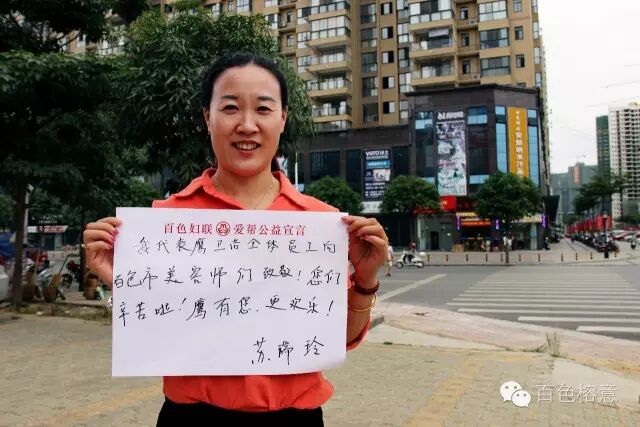 百色妇联 爱帮公益宣言
我代表鹰卫浴全体员工向
百色市美容师们致敬!您们
辛苦啦!鹰有您.更欢乐!
苏瑞玲
百色榕意